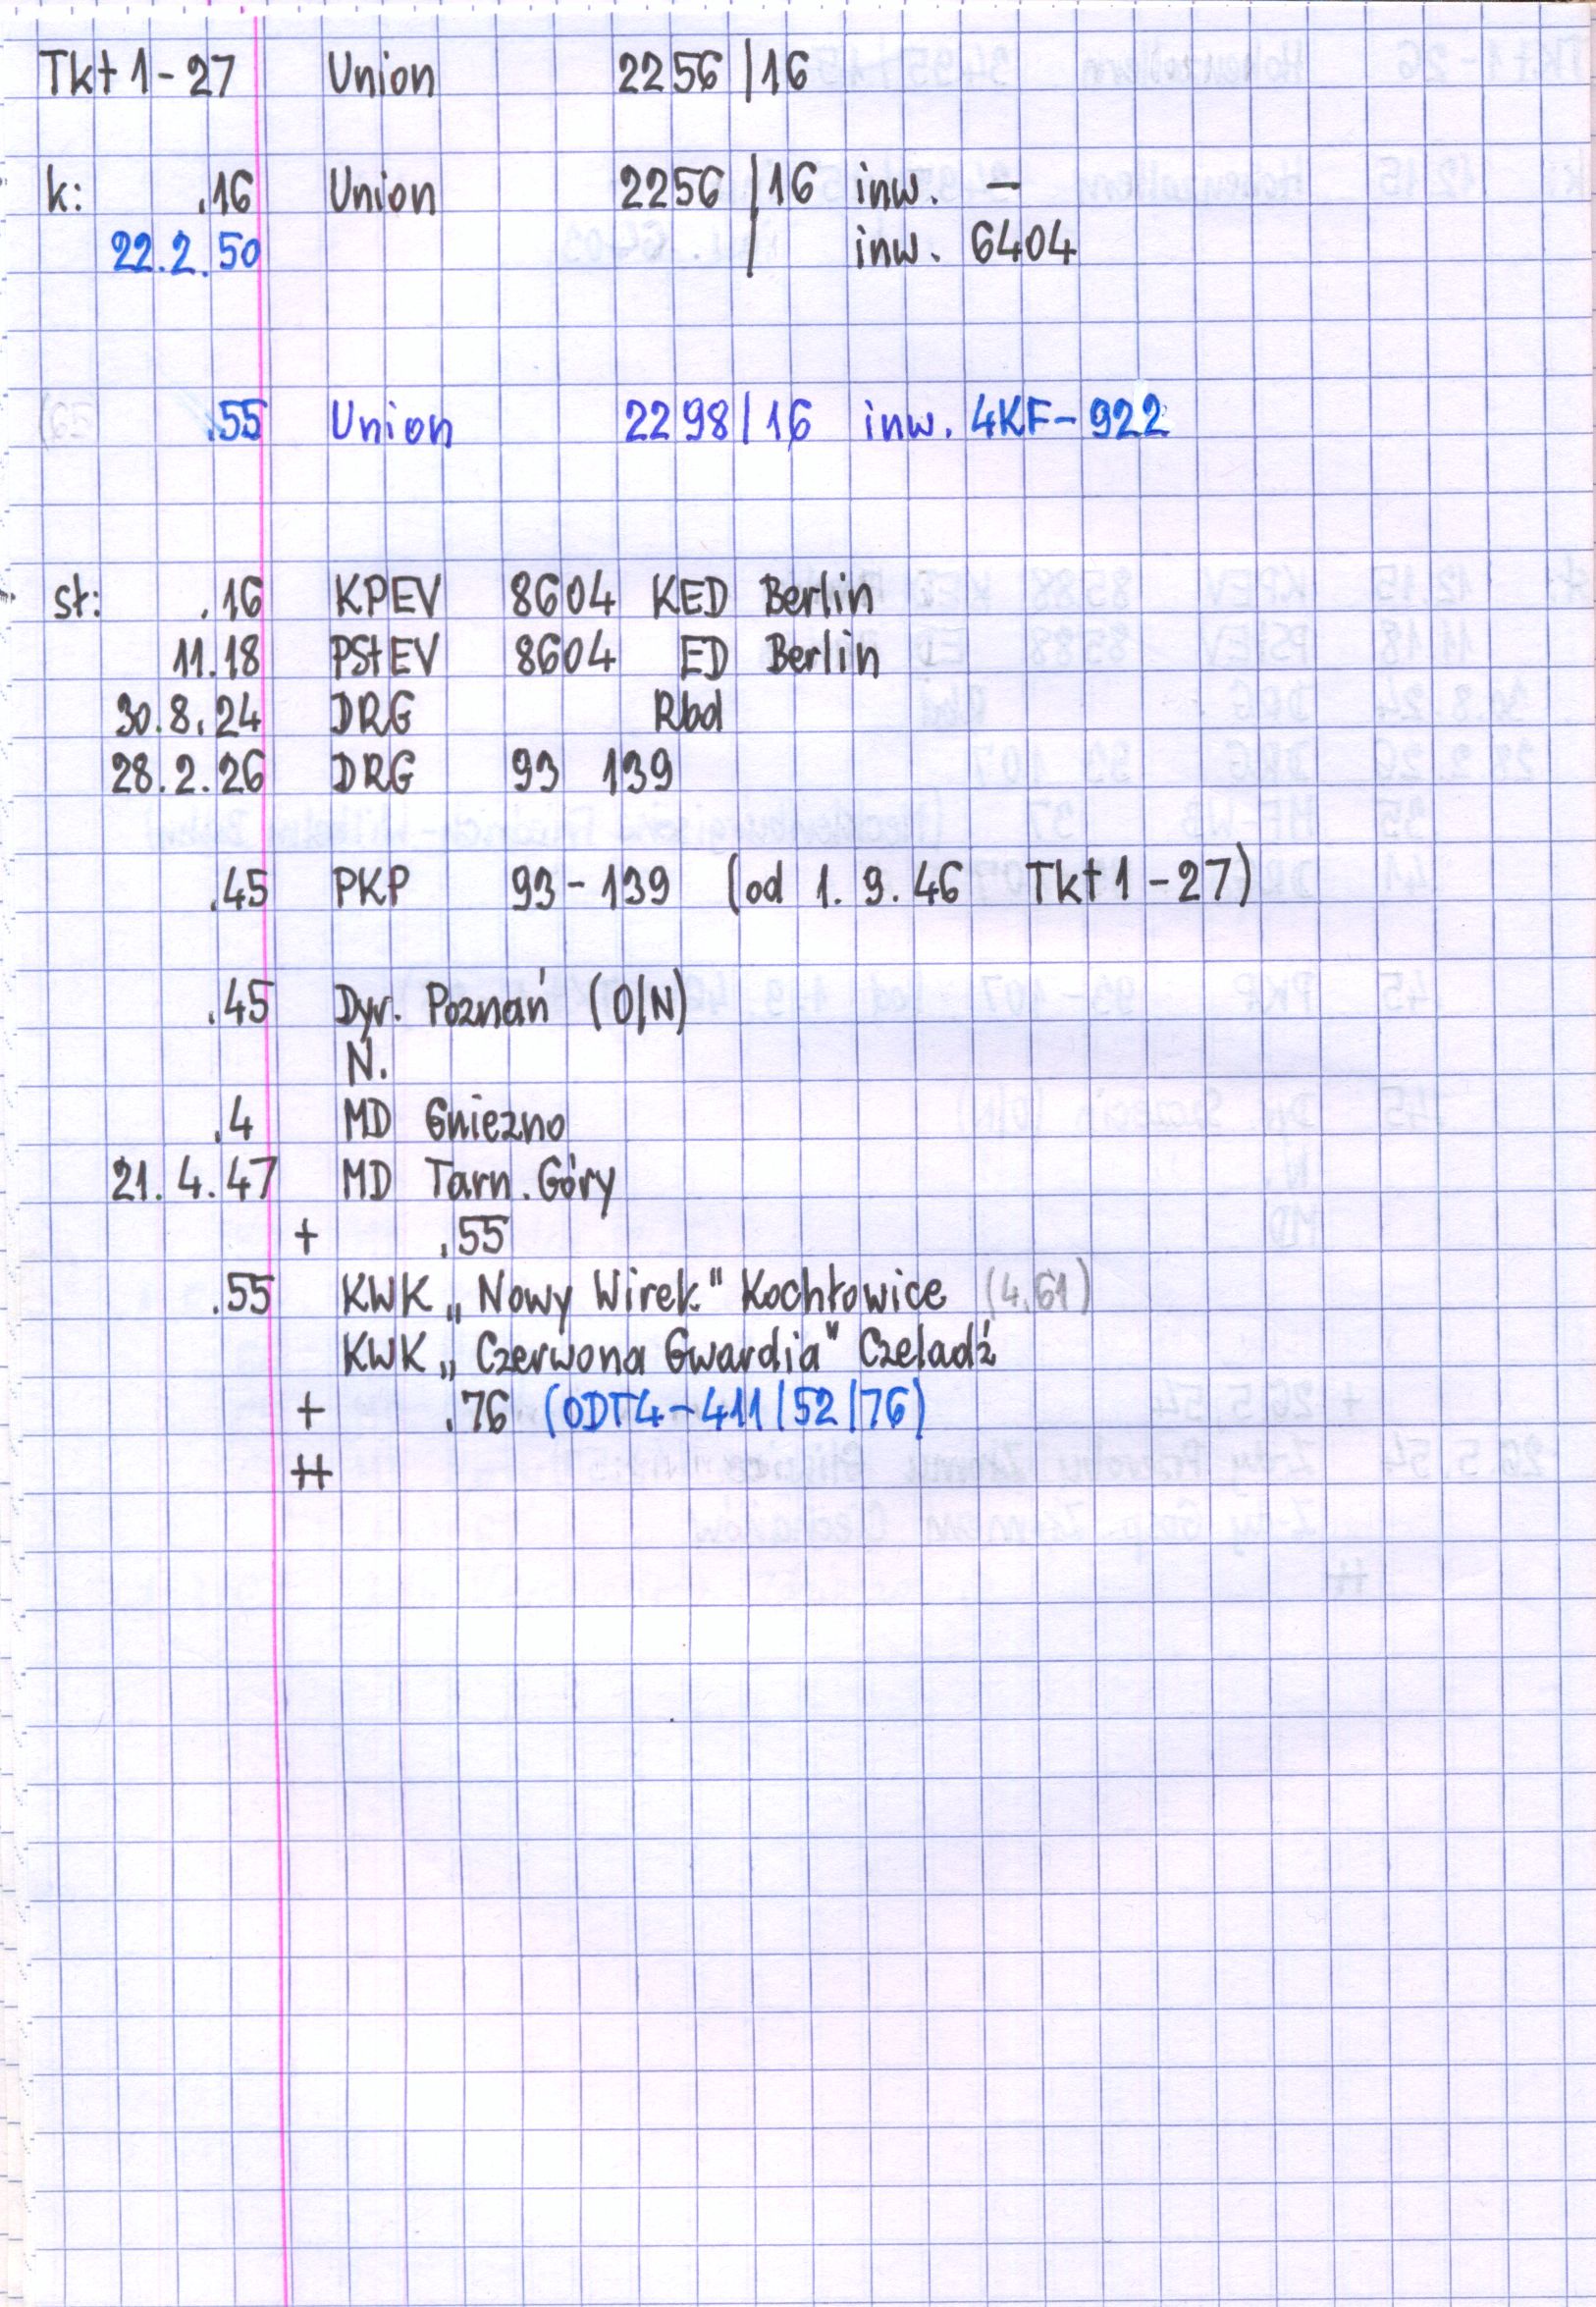 Tkt 1-27 Union 2256/16
k: .16 Union 2256/16 inw. –
22.2.50 / inw. 6404
.55 Union 2298/16 inw. 4KF-922
st: .16 KPEV 8604 KED Berlin
11.18 PStEV 8604 ED Berlin
30.8.24 DRG Rbd
28.2.26 DRG 93 139
.45 PKP 93-139 (od 1.9.46 Tkt 1-27)
.45 Dyr. Poznań (O/N)
N.
.4 MD Gniezno
21.4.47 MD Tarn. Góry
+ .55
.55 KWK „Nowy Wirek" Kochłowice (4.61)
KWK „Czerwona Gwardia" Czeladź
+ .76 (ODT4-411/52/76)
++